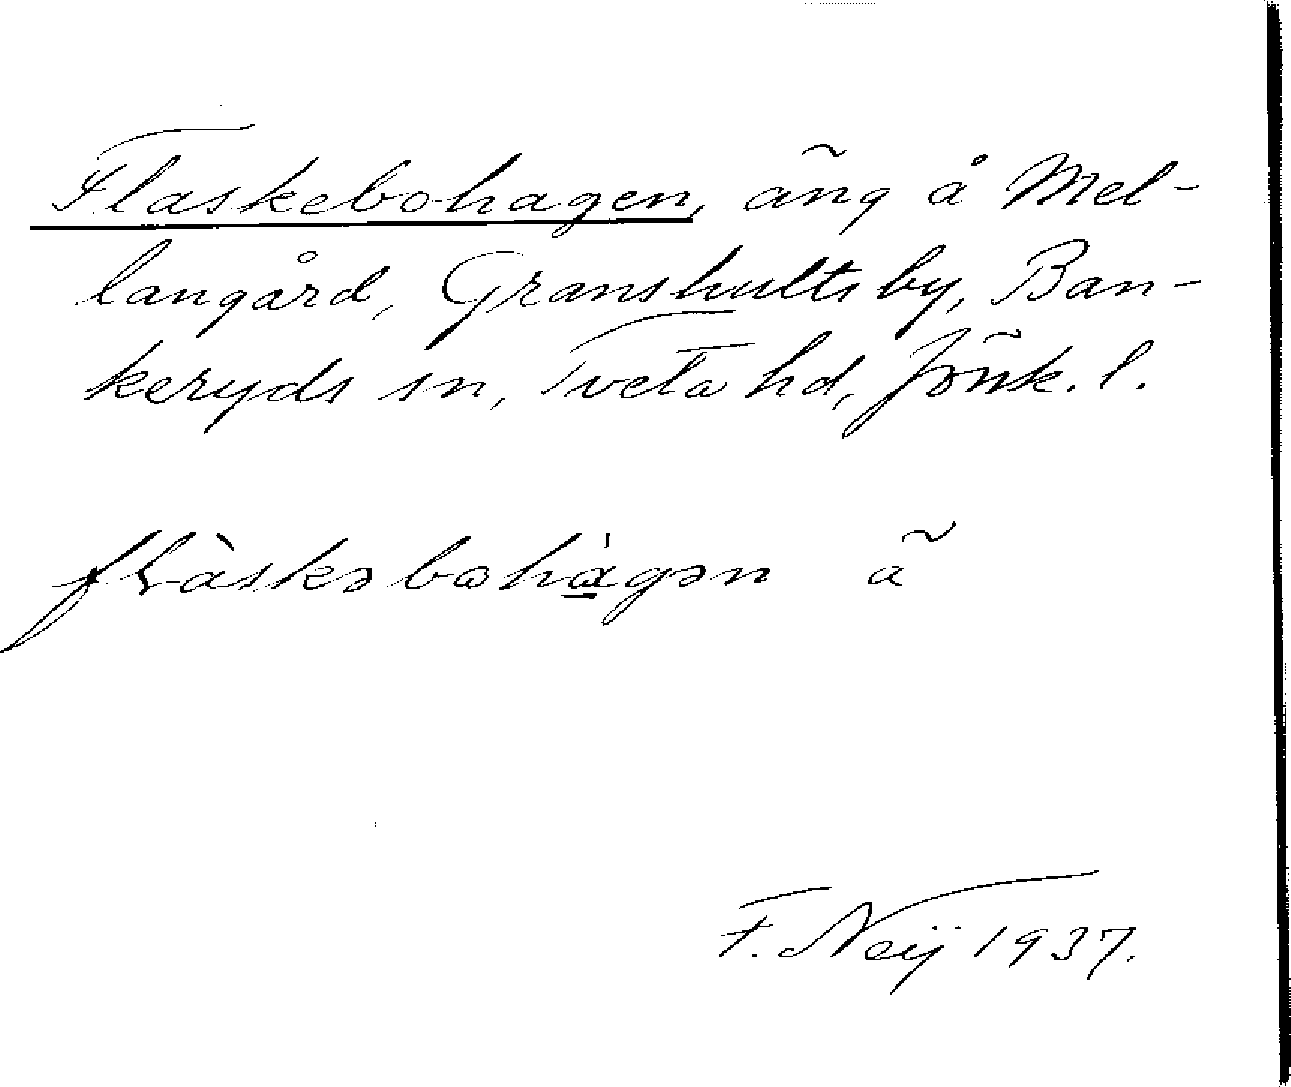 Flaskebohagen, äng å Mel-
langård, Granshults by, Ban-
keryds sn, Tveta hd, Jönk. l.
flàskəbohàgən ã
F. Neij 1937.